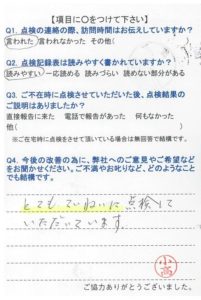 【項目に〇をつけて下さい】
Q1. 点検の連絡の際、訪問時間はお伝えしていますか?
言われた 言われなかった その他(
Q2. 点検記録表は読みやすく書かれていますか?
読みやすい 一応読める 読みづらい 読めない部分がある
Q3. ご不在時に点検させていただいた後、点検結果の
ご説明はありましたか?
直接報告に来た 電話で報告があった 何もなかった
他( )
※ご在宅時に点検をさせて頂いている場合は無回答で結構です。
Q4. 今後の改善の為に、弊社へのご意見やご希望など
をお聞かせください。ご不満やお叱りなど、どのようなこと
でも結構です。
とてもていねいに点検して
いただいています。
小高
ご協力ありがとうございました。